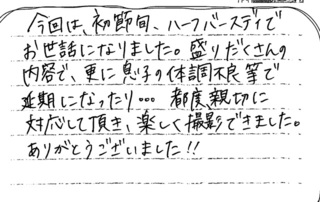 今回は、初節句、ハーフバースデイで
お世話になりました。盛りだくさんの
内容で、更に息子の体調不良等で
延期になったり… 都度親切に
対応して頂き、楽しく撮影できました。
ありがとうございました!!